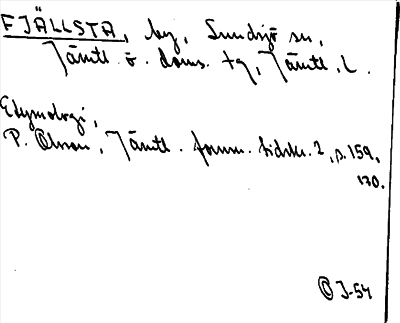 FJÄLLSTA, by, Sundsjö sn,
Jämtl. ö. doms. tg, Jämtl. l.
Etymologi,
P. Olsson, Jämtl. fornm. tidskr. 2, s. 159,
170.
© J-54